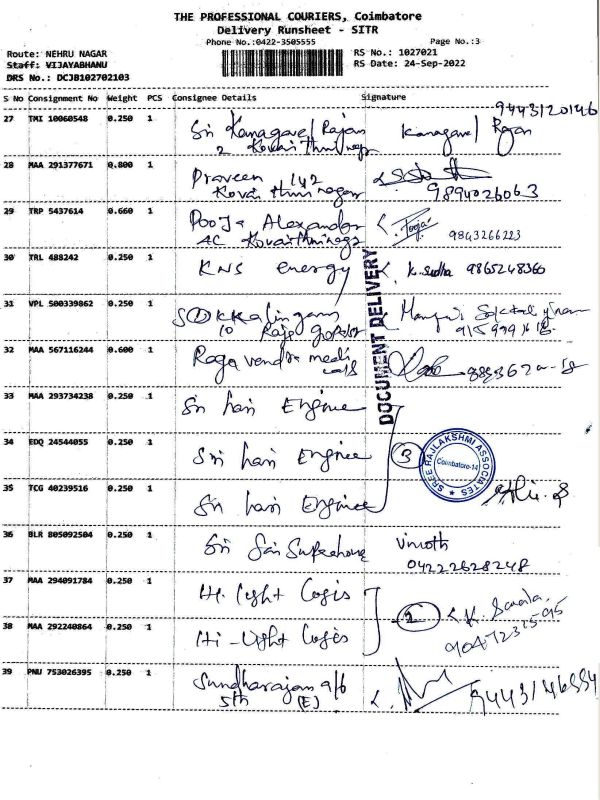 THE PROFESSIONAL COURIERS, Coimbatore
Delivery Runsheet - SITR
Phone No.:0422-3505555
Page No.:3
Route: NEHRU NAGAR
RS No.: 1027021
Staff: VIJAYABHANU
RS Date: 24-Sep-2022
DRS No.: DCJB102702103
S No Consignment No Weight PCS Consignee Details Signature
9443120146
27 TMI 10060548 0.250 1 Sri Kanagavel Rajan Kanagavel Rajan
2
28 MAA 291377671 0.800 1 Praveen 142
9894026063
29 TRP 5437614 0.660 1 Pooja Alexander Pooja
4C 9843266223
30 TRL 488242 0.250 1 KNS energy K. Sudha 9865248366
31 VPL 500339862 0.250 1
10
32 MAA 567116244 0.600 1 Ragavendra
DOCUMENT DELIVERY
33 MAA 293734238 0.250 1 Sri hari Engine
34 EDQ 24544055 0.250 1 Sri hari Engine 3
SREE RAJLAKSHMI ASSOCIATES
Coimbatore-14
35 TCG 40239516 0.250 1 Sri hari Engine
36 BLR 805092504 0.250 1 Sri Sai Vinoth
04222628248
37 MAA 294091784 0.250 1 Hi-Light Logis
2 K. Sarala.
38 MAA 292240864 0.250 1 Hi-Light Logis
39 PNU 753026395 0.250 1 Sundharajan a/6
5th (E)